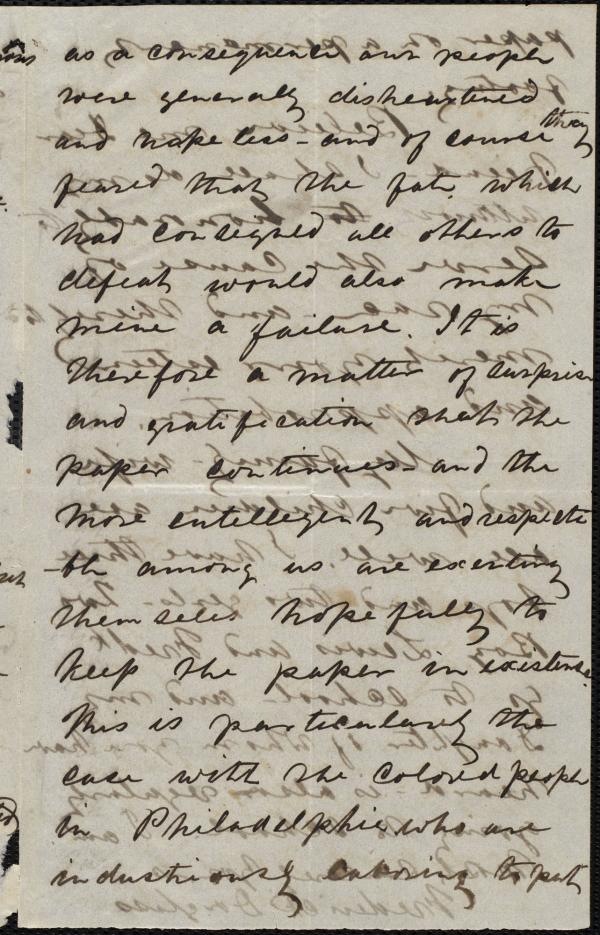 as a consequence our people
were generally disheartened
and hopeless - and of course they
feared that the fate which
had consegned all others to
defeat would also make
mine a failure. It is
therefore a matter of surprise
and gratification that the
paper continues - and the
more entellegent and respecta
-ble among us are exerting
themselves hopefully to
keep the paper in existense.
This is particularly the
case with the colored people
in Philadelphia who are
industriously laboring to put